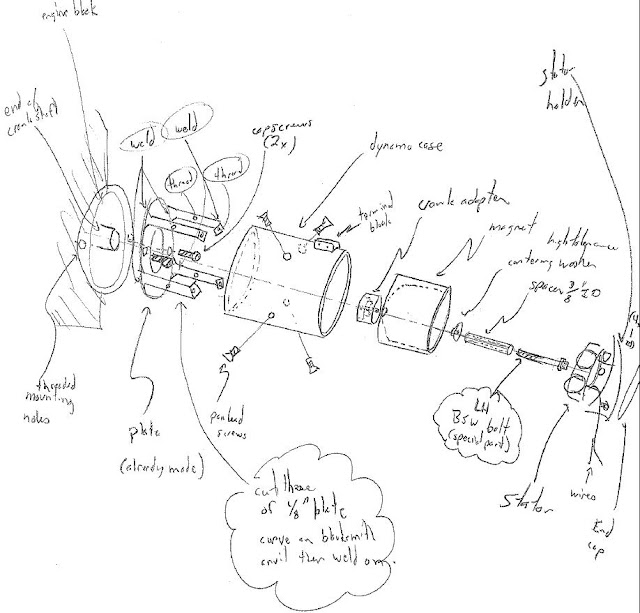 engine block
end of
crankshaft
weld
weld
thread
thread
capscrews
(2x)
dynamo case
terminal
block
crank adapter
magnet
high tolerance
centering washer
spacer 3/8" ID
stator
holder
threaded
mounting
holes
plate
(already made)
panhead
screws
cut these
of 1/8" plate
curve on blacksmith
anvil then weld on.
LH
BSW bolt
(special part)
stator
wires
End
cap